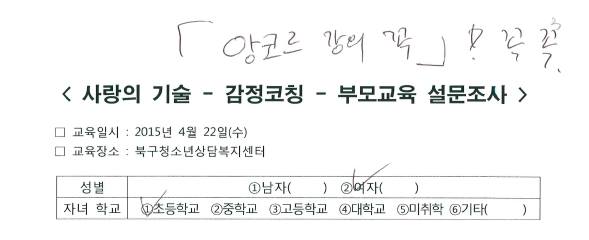 「앙코르 강의 꼭」! 꼭 꼭
< 사랑의 기술 - 감정코칭 - 부모교육 설문조사 >
□ 교육일시 : 2015년 4월 22일(수)
□ 교육장소 : 북구청소년상담복지센터
성별 ①남자( ) ②여자( )
자녀 학교 ①초등학교 ②중학교 ③고등학교 ④대학교 ⑤미취학 ⑥기타( )